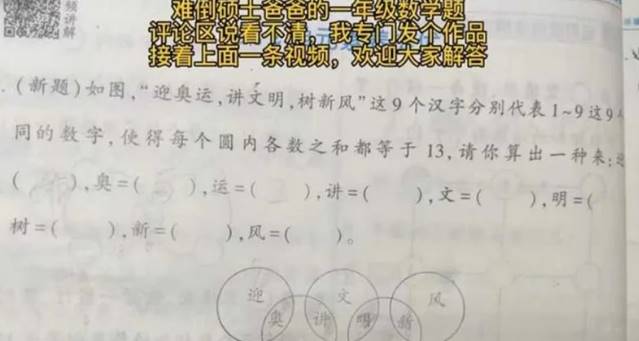 频
讲
解
难到硕士爸爸的一年级数学题
评论区说看不清，我专门发个作品
接着上面一条视频，欢迎大家解答
.(新题)如图,“迎奥运,讲文明,树新风”这9个汉字分别代表1~9这9
同的数字,使得每个圆内各数之和都等于13,请你算出一种来:
(　　),奥=(　　),运=(　　),讲=(　　),文=(　　),明=(
树=(　　),新=(　　),风=(　　)。
迎 文 风
奥 讲 明 新